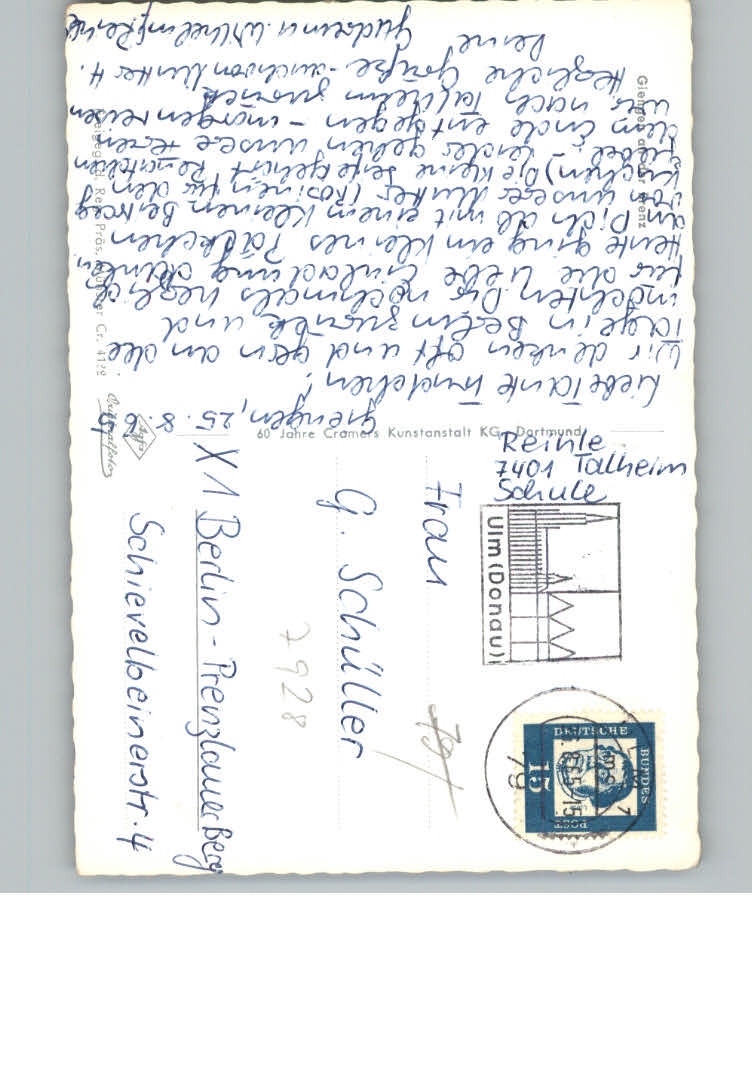 Giengen, 25. 8. 65
Liebe Tante Trudchen!
Wir denken oft und gern an die
Tage in Berlin zurück und
möchten Dir nochmals herzlich
für die liebe Einladung danken.
Heute ging ein kleines Päckchen
an Dich ab mit einem kleinen Beitrag
von unserer Mutter (Rosinen für den
Kuchen) Die kleine Seife gehört
Leider gehen unsere Ferien
dem Ende entgegen - morgen reisen
wir nach Talheim zurück.
Herzliche Grüße - auch von Mutter H.
Deine
Gudrun u. Wilhelm Reihle
Giengen an der Brenz
60 Jahre Cramers Kunstanstalt KG, Dortmund
Agfa
Originalfoto
Reihle
7401 Talheim
Schule
Frau
G. Schüller
X 1 Berlin - Prenzlauer Berg
Schievelbeinerstr. 4
79
7928
Ulm (Donau)
79
DEUTSCHE
BUNDES
POST
15